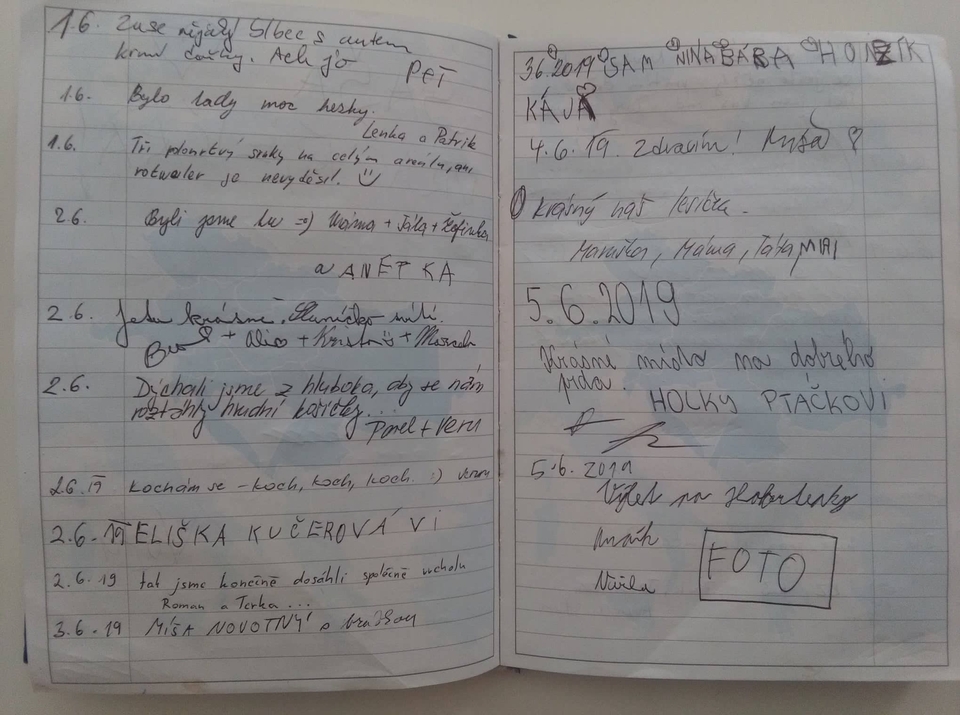 1.6. Zase nějaký blbec s autem
krmí čočky. Ach jo
PET
1.6. Bylo tady moc hezky.
Lenka a Patrik
1.6. Tři plonrtvý sraky na celým areálu, ani
rotwailer je nevyděsil. ☺
2.6. Byli jsme tu =) Máma + Táta + Žofinka
a ANETKA
2.6. Je tu krásně. Sluníčko svítí.
+ Alice + + 
2.6. Dýchali jsme z hluboka, aby se nám
roztáhly hrudní košíčky...
Pavel + Veru
2.6.19 Kochám se - koch, koch, koch. :)
2.6.19 ELIŠKA KUČEROVÁ VI
2.6.19 tat jsme konečně dosáhli společně vrcholu
Roman a Terka...
3.6.19 MÍŠA NOVOTNÝ a
3.6.2019 SAM NINA BÁRA HONZÍK
KÁJA
4.6.19. Zdravím! Myša ♡
Krásný náš
Maruška, Máma, Táta, MIA
5.6.2019
Krásné místo na dobrého
prda.
HOLKY PTÁČKOVI
5.6.2019
Výlet na
FOTO